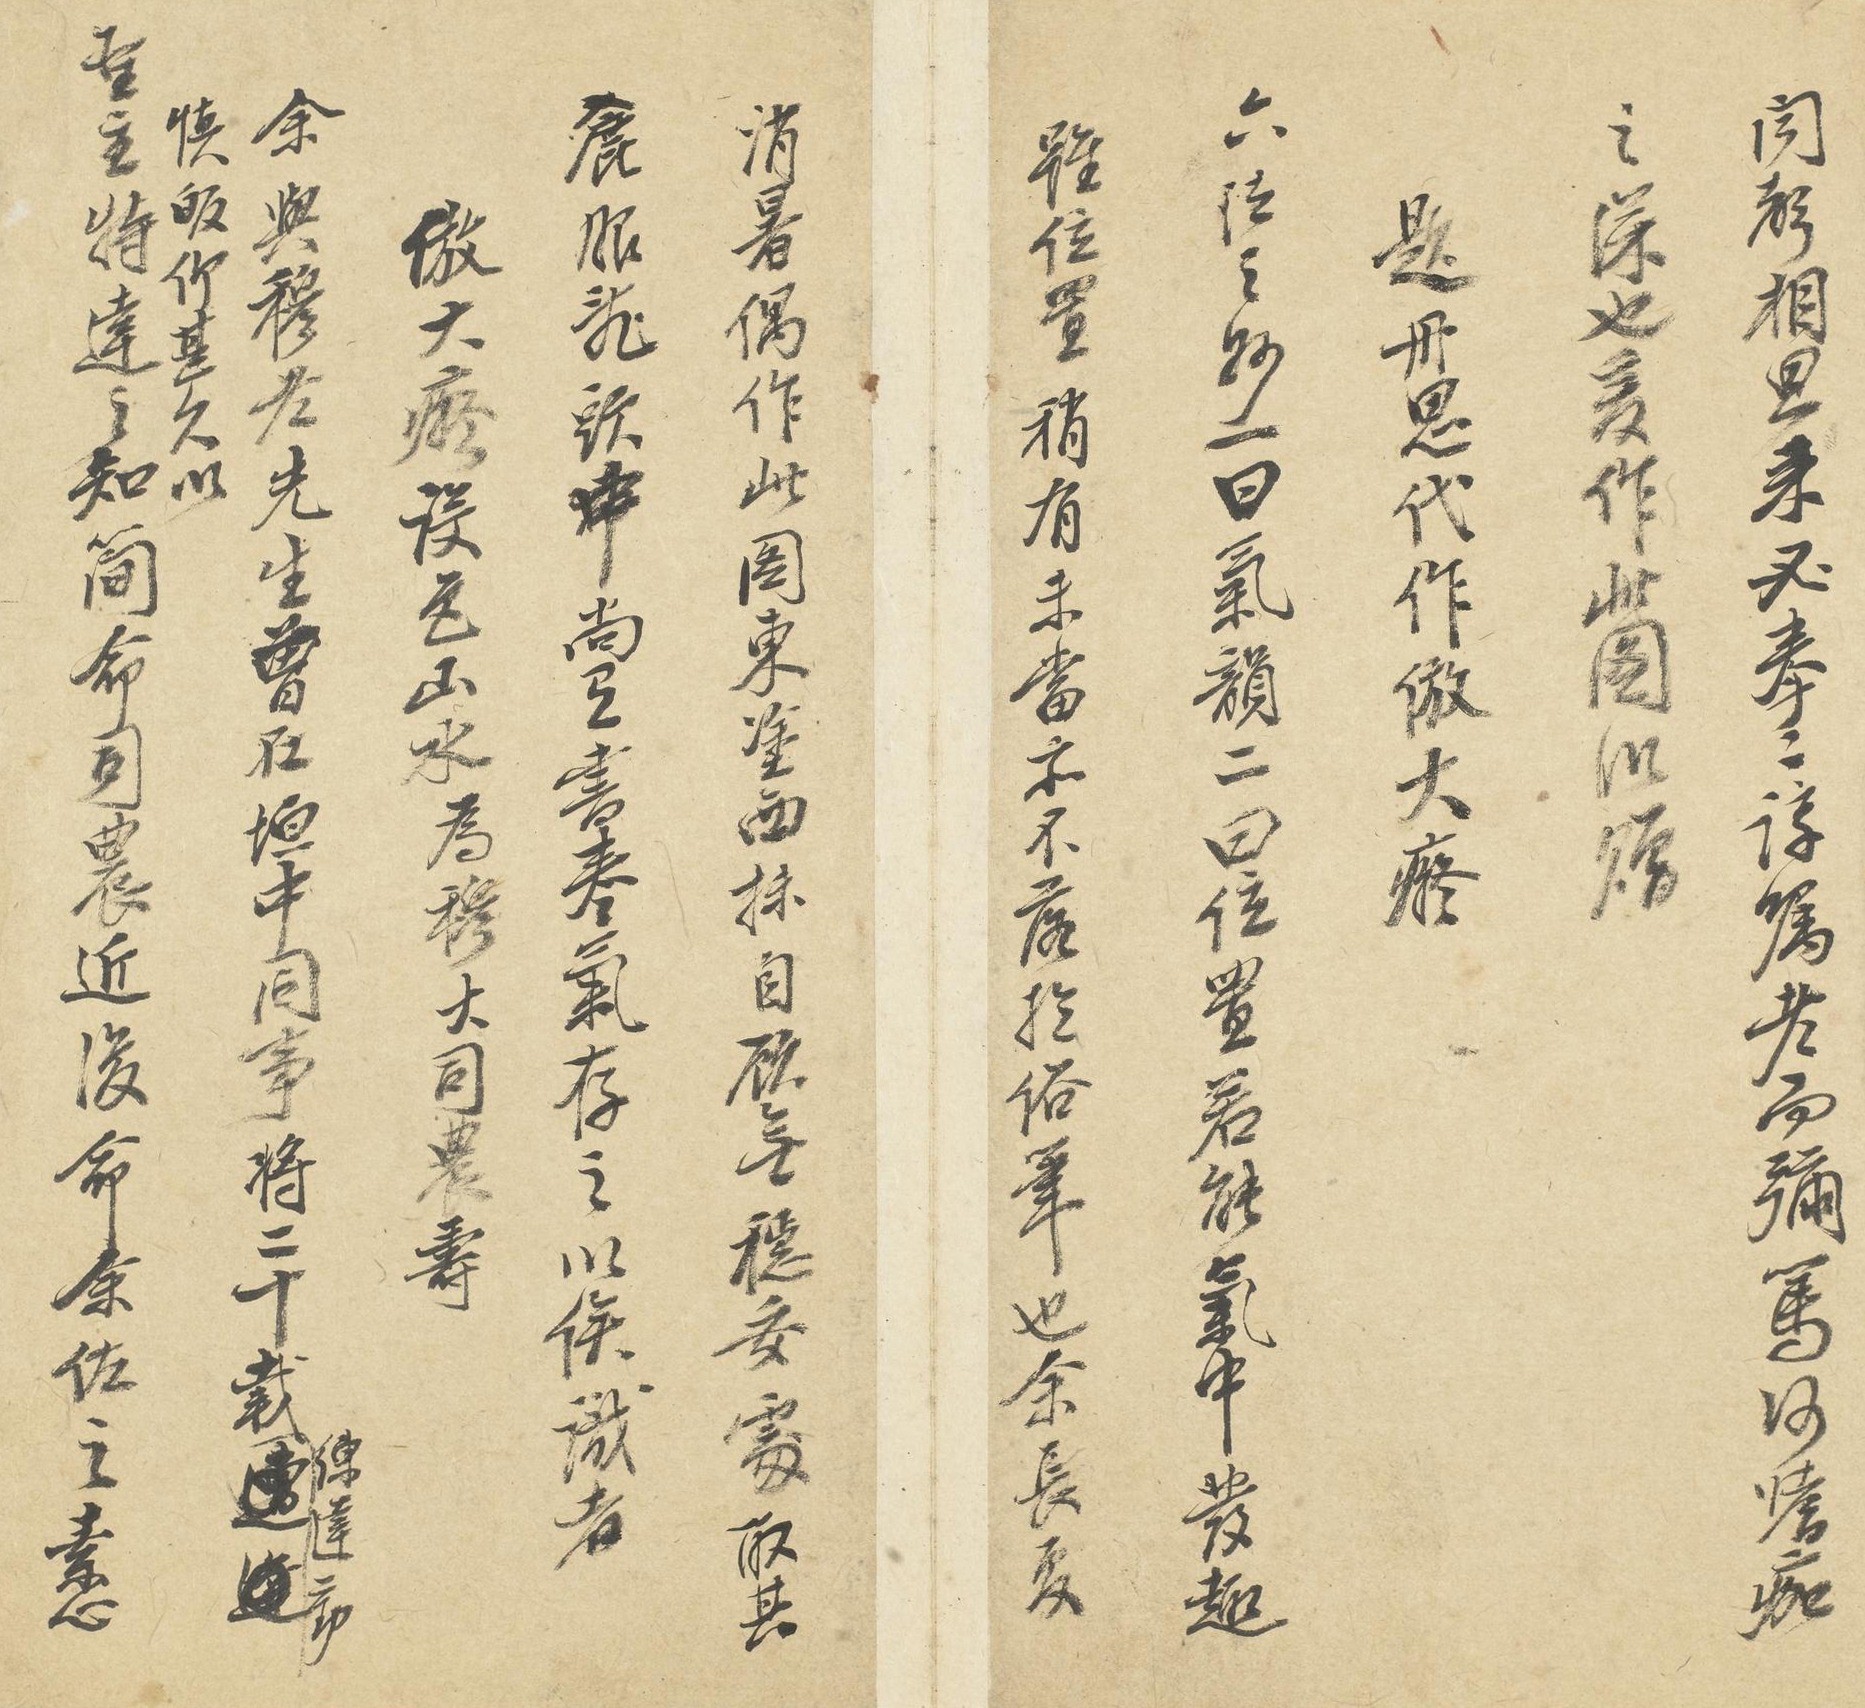 闻聲相思来必拳二諄嘱老而彌篤何嗜痂
之深也爰作此圖以贈
題丹思代作倣大癡
六法之妙一曰氣韻二曰位置若能氣中發趣
雖位置稍有未當亦不落於俗筆也余長夏
消暑偶作此圖東塗西抹自顧無穩妥處取其
麁服亂頭中尚有書卷氣存之以俟識者
倣大癡設色山水為穆大司農壽
余與穆老先生曾在垣中同事将二十載
練達勤
慎皈仰甚久以
聖主特達之知簡命司農近復命余佐之素心